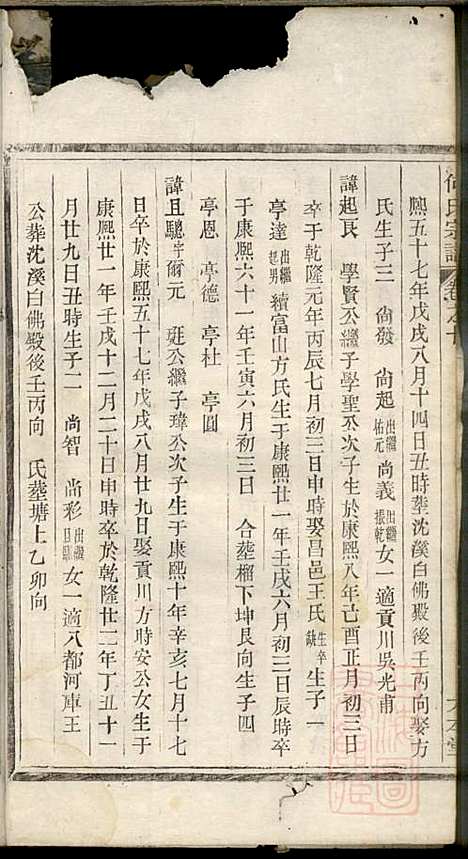 何氏宗譜
卷之十
熙五十七年戊戌八月十四日丑時葬沈溪白佛殿後壬丙向娶方
氏生子三　尚發　尚起出繼祐元　尚義出繼振乾　女一適貢川吳光甫
諱起良　學賢公繼子學聖公次子生於康熙八年己酉正月初三日
卒于乾隆元年丙辰七月初三日申時娶昌邑王氏生卒缺生子一
亭達出繼起男　續富山方氏生于康熙廿一年壬戌六月初三日辰時卒
于康熙六十一年壬寅六月初三日　合葬榴下坤艮向生子四
亭恩　亭德　亭社　亭圓
諱且驄字爾元　珽公繼子瑋公次子生于康熙十年辛亥七月十七
日卒於康熙五十七年戊戌八月廿九日娶貢川方時安公女生于
康熙廿一年壬戌十二月二十日申時卒於乾隆廿二年丁丑十一
月廿九日丑時生子二　尚智　尚彩出繼且驥　女一適八都河庫王
公葬沈溪白佛殿後壬丙向　氏葬塘上乙卯向